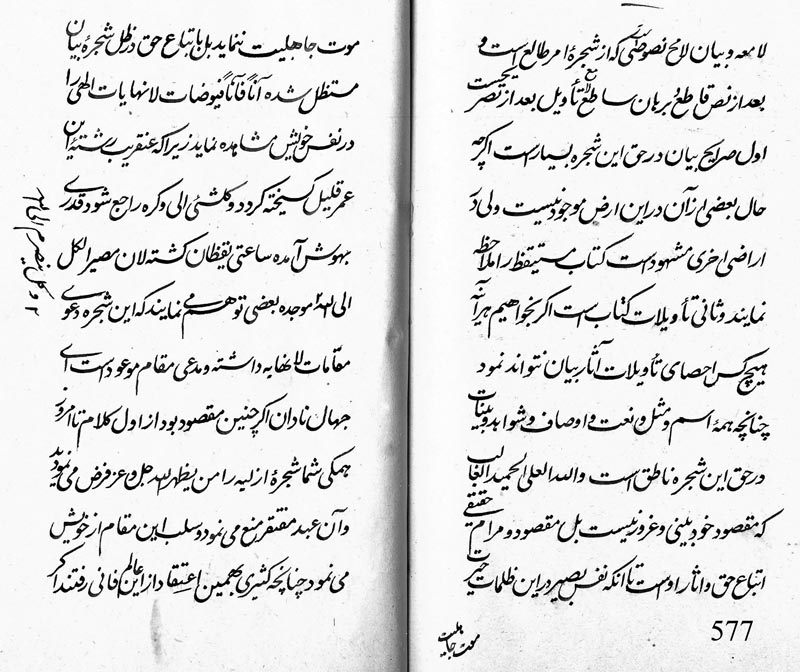 لامعه و بیان لایح نصوصی که از شجرهٔ امر طالع است و
بعد از نص قاطع و برهان ساطع تأویل بعد از نص نیست
اول صرایح بیان در حق این شجره بسیار است اگرچه
حال بعضی از آن در این ارض موجود نیست ولی در
اراضی اخری مشهود است کتاب مستیقظ را ملاحظه
نمایند و ثانی تأویلات کتاب است اگر بخواهیم هرآینه
هیچ کس احصای تأویلات آثار بیان نتواند نمود
چنانچه همهٔ اسم و مثل و نعت و اوصاف و شواهد و بینات
در حق این شجره ناطق است والله العلی الحمید الغالب
که مقصود خودبینی و غرور نیست بل مقصود و مرام حقیقی
اتباع حق و آثار اوست تا آنکه نفس بصیر در این ظلمات حیرت
577
موت جاهلیت
موت جاهلیت ننماید بل باتباع حق در ظل شجرهٔ بیان
مستظل شده آناً فآناً فیوضات لانهایات الهی را
در نفس خویش مشاهده نماید زیرا که عنقریب رشتهٔ این
عمر قلیل گسیخته گردد و کلشئ الی وکره راجع شود قدری
بهوش آمده ساعتی یقظان گشته لان مصیر الکل
الی الله موجده بعضی توهم می نمایند که این شجره دعوی
مقامات لانهایه داشته و مدعی مقام موعود است ای
جهال نادان اگر چنین مقصود بود از اول کلام تا امروز
همکی شما شجرهٔ ازلیه را من یظهر الله جل و عز فرض می نمودید
و آن عبد مفتقر منع می نمود و سلب این مقام از خویش
می نمود چنانچه کثیری بهمین اعتقاد از این عالم فانی رفتند اگر